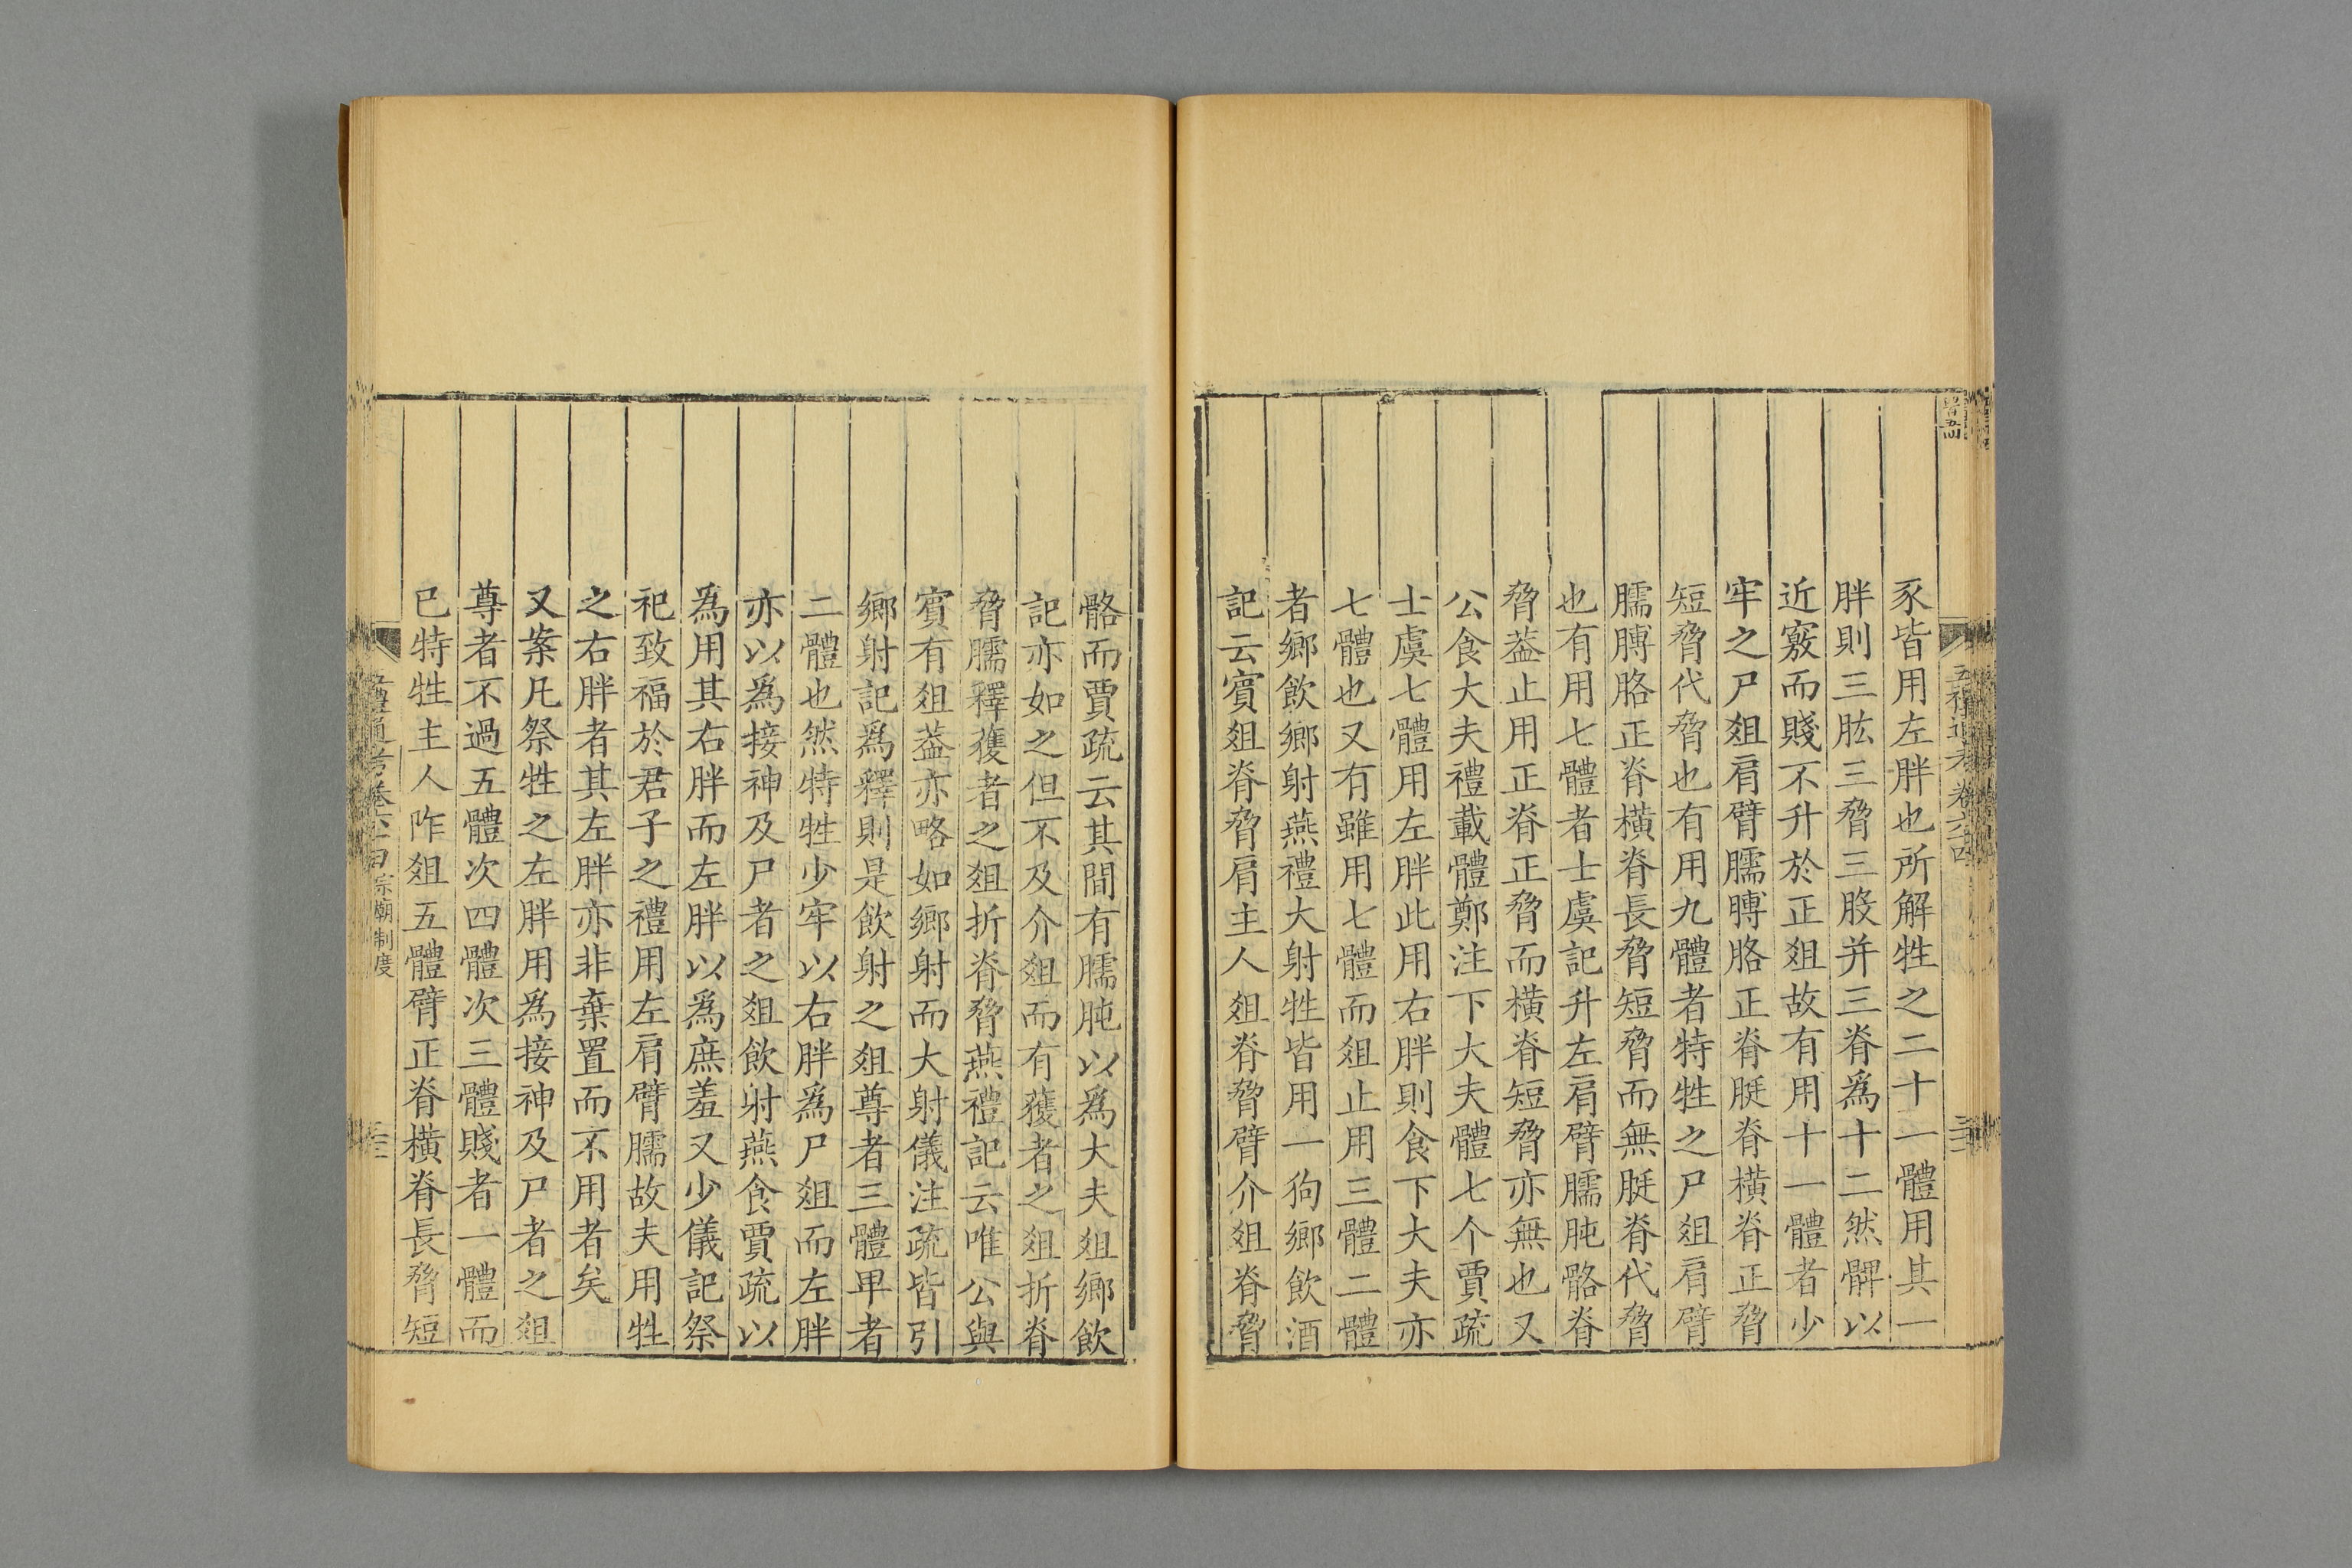 五禮通考 卷六十四
豕皆用左胖也所解牲之二十一體用其一
胖則三肱三脅三股并三脊爲十二然髀以
近竅而賤不升於正俎故有用十一體者少
牢之尸俎肩臂臑膊胳正脊脡脊橫脊正脅
短脅代脅也有用九體者特牲之尸俎肩臂
臑膊胳正脊橫脊長脅短脅而無脡脊代脅
也有用七體者士虞記升左肩臂臑肫骼脊
脅葢止用正脊正脅而橫脊短脅亦無也又
公食大夫禮載體鄭注下大夫體七个賈疏
士虞七體用左胖此用右胖則食下大夫亦
七體也又有雖用七體而俎止用三體二體
者鄉飲鄉射燕禮大射牲皆用一狗鄉飲酒
記云賓俎脊脅肩主人俎脊脅臂介俎脊脅
骼而賈疏云其間有臑肫以爲大夫俎鄉飲
記亦如之但不及介俎而有獲者之俎折脊
脅臑釋獲者之俎折脊脅燕禮記云唯公與
賓有俎葢亦略如鄉射而大射儀注疏皆引
鄉射記爲釋則是飲射之俎尊者三體卑者
二體也然特牲少牢以右胖爲尸俎而左胖
亦以爲接神及尸者之俎飲射燕食賈疏以
爲用其右胖而左胖以爲庶羞又少儀記祭
祀致福於君子之禮用左肩臂臑故夫用牲
之右胖者其左胖亦非棄置而不用者矣
又案凡祭牲之左胖用爲接神及尸者之俎
尊者不過五體次四體次三體賤者一體而
已特牲主人阼俎五體臂正脊橫脊長脅短
禮通考 卷六十四 宗廟制度